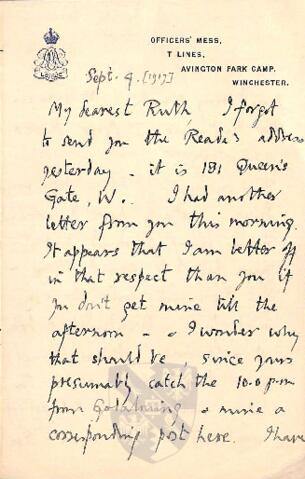 OFFICERS' MESS,
T LINES,
AVINGTON PARK CAMP.
WINCHESTER.
Sept. 9. [1917]
My dearest Ruth, I forgot
to send you the Reades address
yesterday - it is 181 Queen's
Gate, W.. I had another
letter from you this morning.
It appears that I am better off
in that respect than you if
you don't get mine till the
afternoon - & I wonder why
that should be, since yours
presumably catch the 10.0 p.m
from Godalming & mine a
corresponding post here. I have